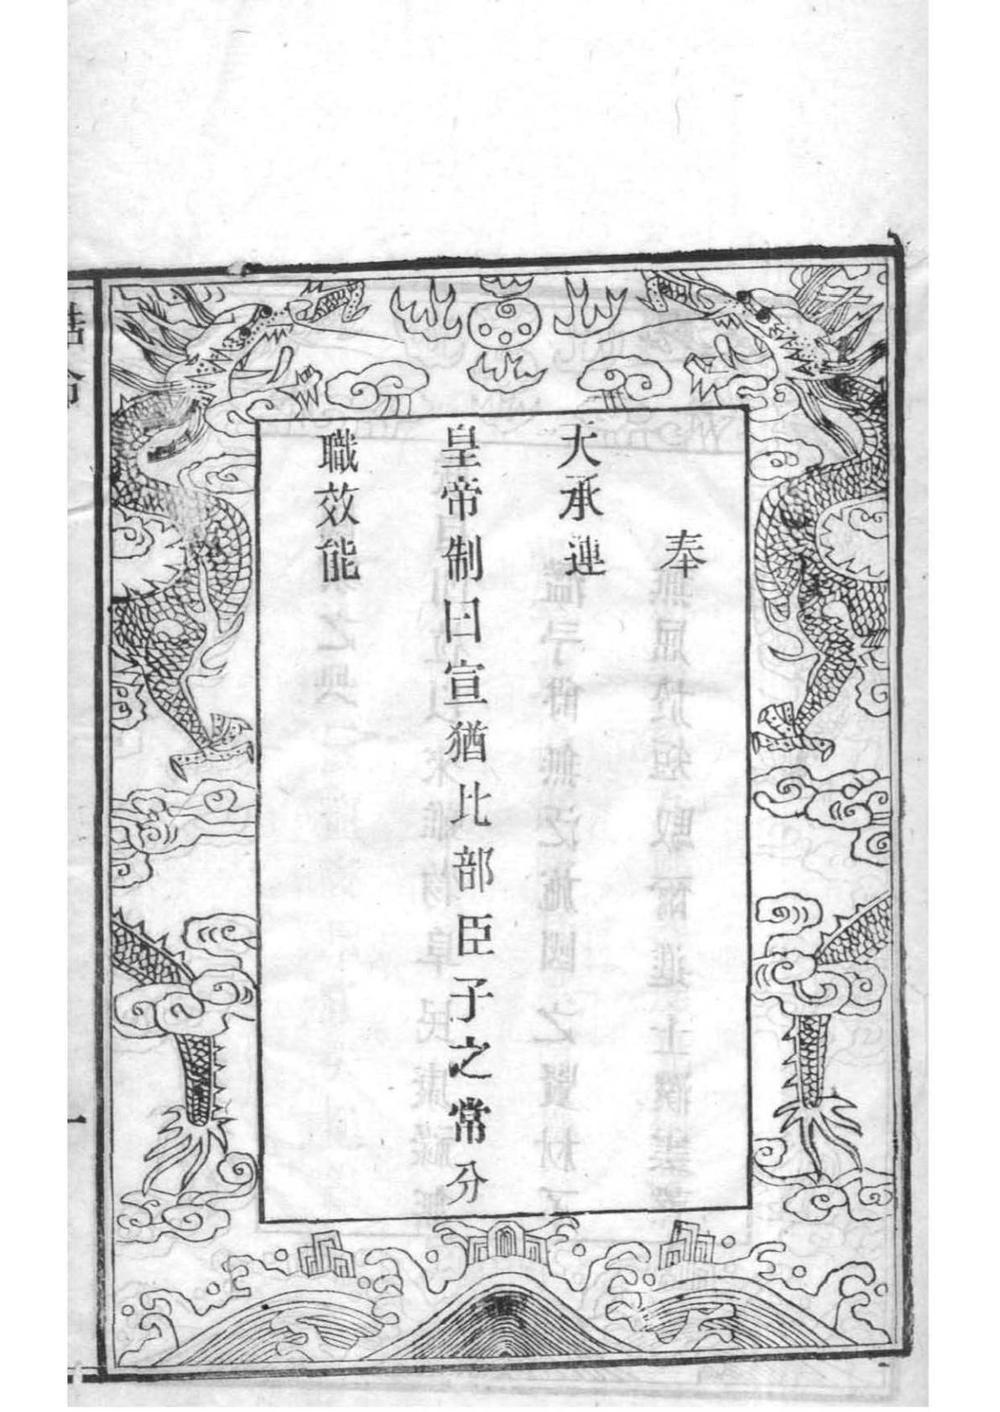 奉
天承運
皇帝制曰宣猶比部臣子之常分
職效能
誥命
一